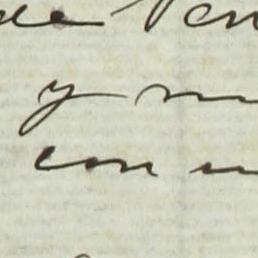 de Ven
y m
con u